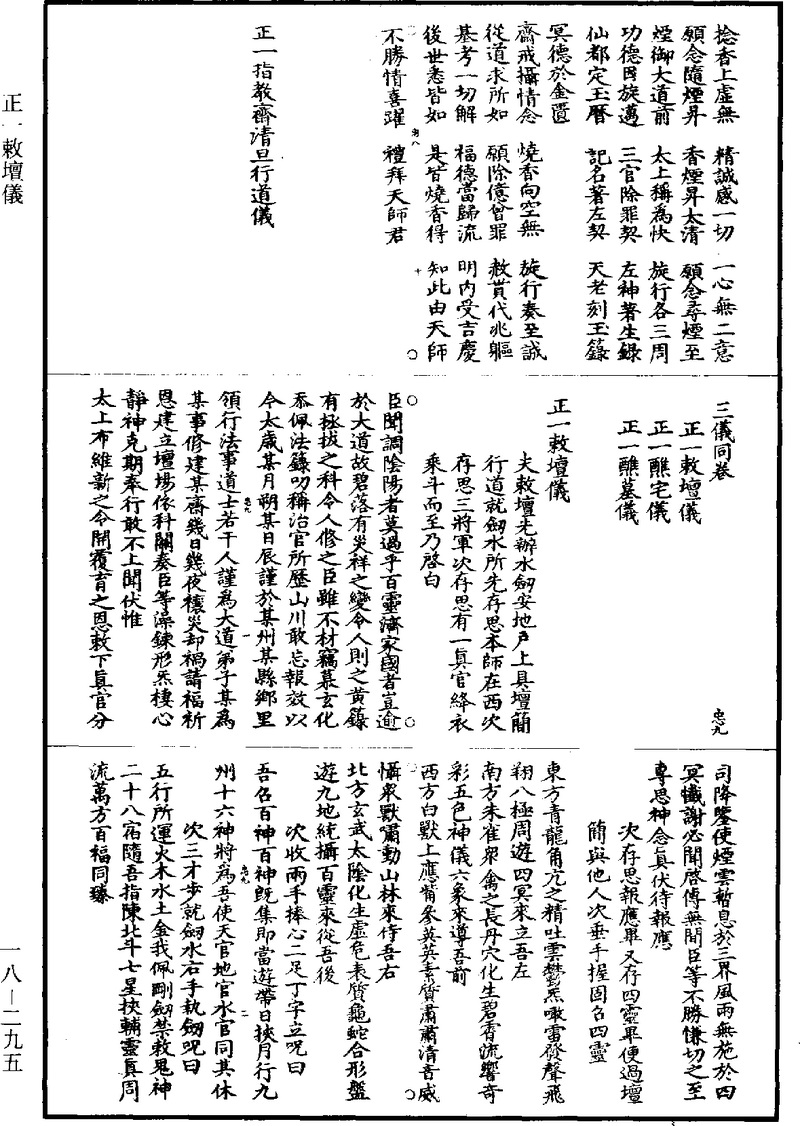 正一敕壇儀
捻香上虛無　精誠感一切　一心無二意
願念隨煙昇　香煙昇太清　願念尋煙至
煙御大道前　太上稱為快　旋行各三周
功德因族邁　三官除罪契　左神著生錄
仙都定玉曆　記名著左契　天老刻玉籙
冥德於金匱
齋戒攝情念　燒香向空無　旋行奏至誠
從道求所如　願除億曾罪　赦貰代兆軀
基考一切解　福德當歸流　明內受吉慶
後世悉皆如　是皆燒香得　知此由天師
不勝情喜躍　禮拜天師君
正一指教齋清旦行道儀
三儀同卷　忠九
正一敕壇儀
正一醮宅儀
正一醮墓儀
正一敕壇儀
夫敕壇先辦水劒安地戶上具壇簡
行道就劒水所先存思本師在西次
存思三將軍次存思有一真官絳衣
乘斗而至乃啓白
臣聞調陰陽者莫過乎百靈濟家國者豈逾
於大道故碧落有災祥之變令人則之黃籙
有拯拔之科令人修之臣雖不材竊慕玄化
忝佩法籙叨稱治官所歷山川敢忘報效以
今太歲某月朔某日辰謹於某州某縣鄉里
領行法事道士若干人謹為大道弟子某為
某事修建某齋幾日幾夜禳災却禍請福祈
恩建立壇場依科關奏臣等澡鍊形炁棲心
靜神克期奉行敢不上聞伏惟
太上布維新之令開覆育之恩敕下真官分
司降鑒使煙雲暫息於三界風雨無施於四
冥懺謝必聞啓傳無間臣等不勝慊切之至
專思神念真伏待報應
次存思報應畢又存四靈畢便過壇
簡與他人次垂手握固召四靈
東方青龍角亢之精吐雲鬱炁噉雷發聲飛
翔八極周遊四冥來立吾左
南方朱雀眾禽之長丹穴化生碧霄流響奇
彩五色神儀六象來導吾前
西方白獸上應觜參英英素質肅肅清音威
懾眾獸嘯動山林來侍吾右
北方玄武太陰化生虛危表質龜蛇合形盤
遊九地統攝百靈來從吾後
次收兩手捧心二足丁字立呪曰
吾召百神百神既集即當遊帶日挾月行九
州十六神將為吾使天官地官水官同其休
次三才步就劒水右手執劒呪曰
五行所運火木水土金我佩剛劒禁敕鬼神
二十八宿隨吾指陳北斗七星挾輔靈真周
流萬方百福同臻
一八—二九五